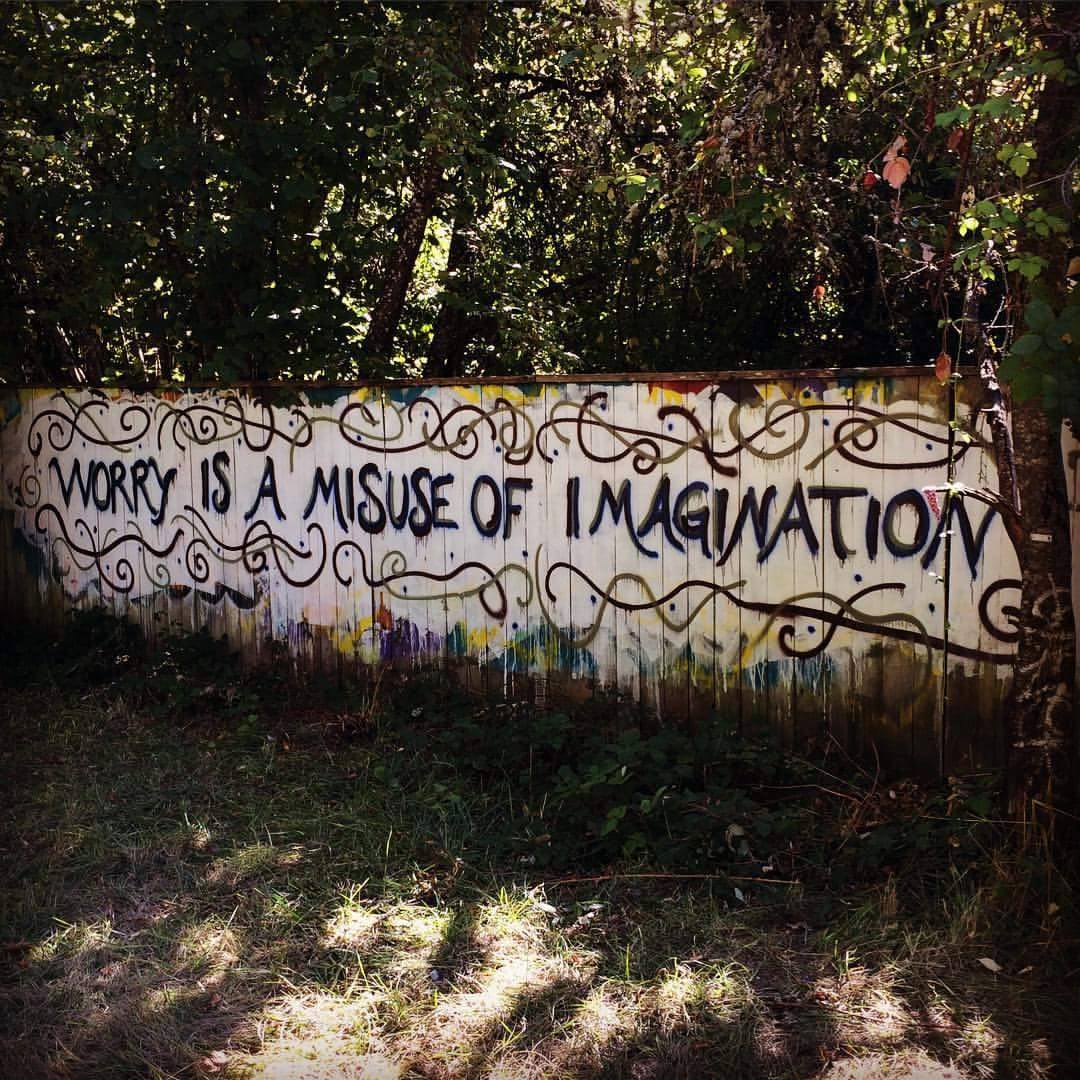 WORRY IS A MISUSE OF IMAGINATION